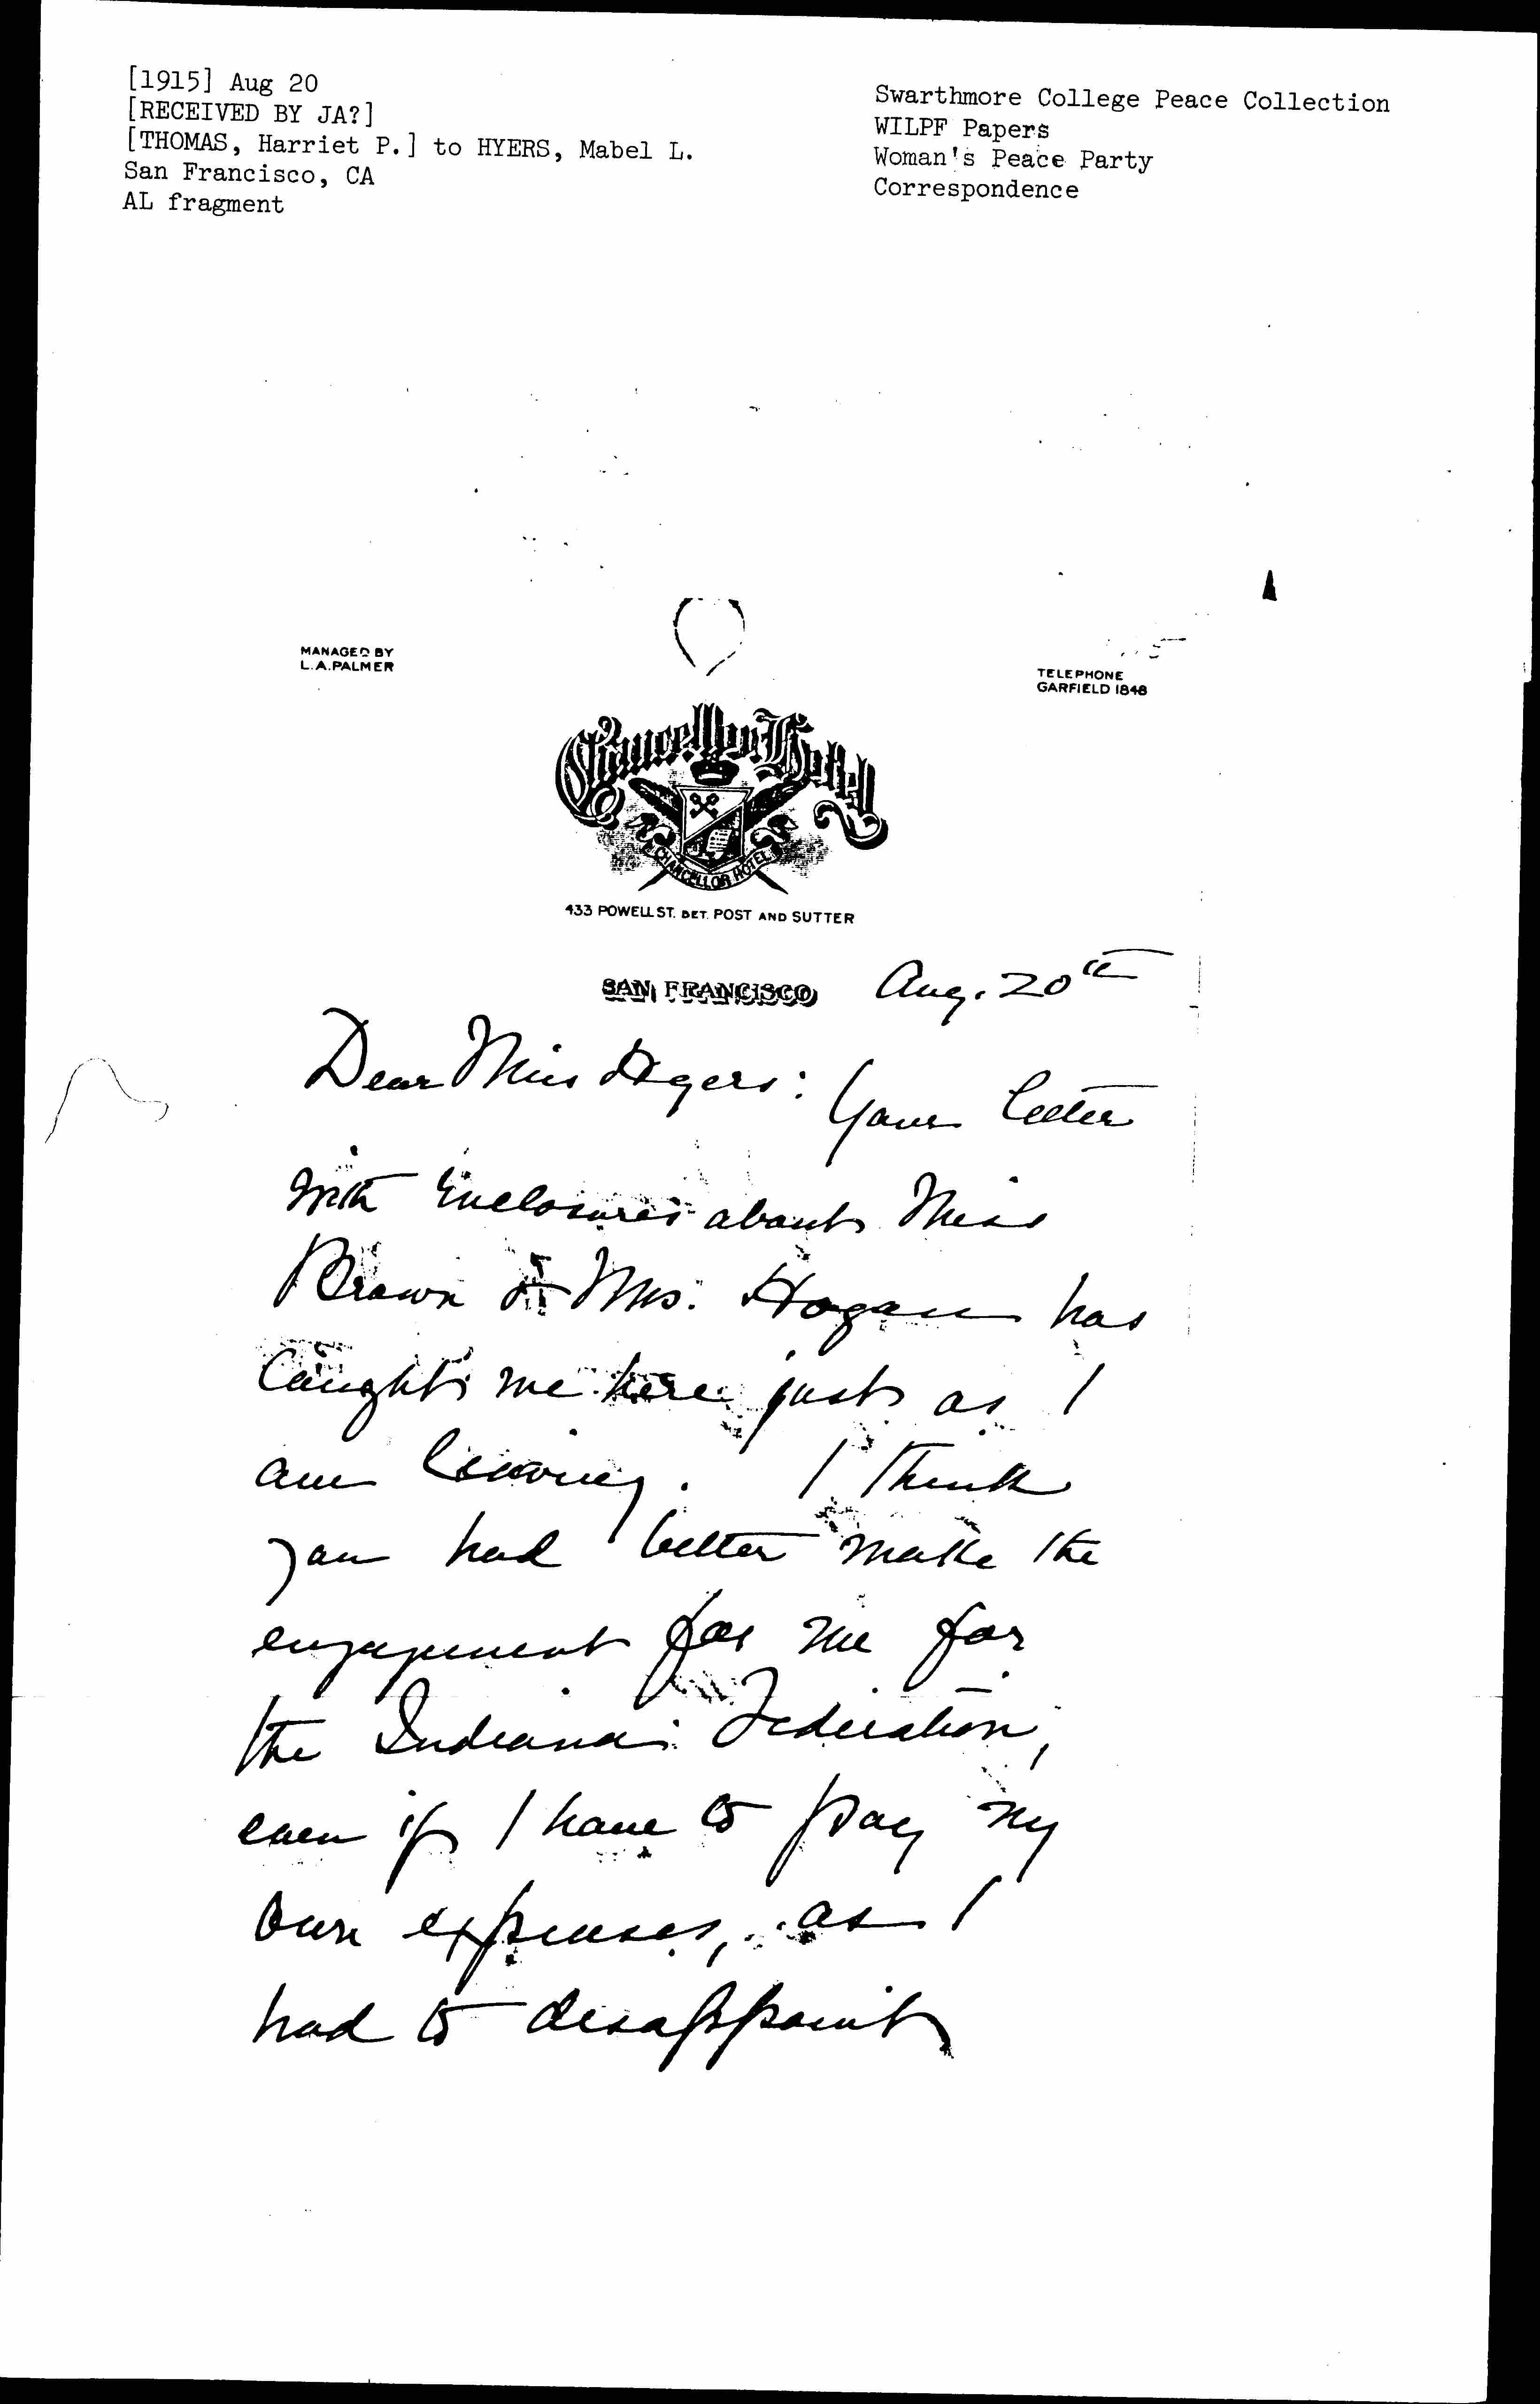 [1915] Aug 20
[RECEIVED BY JA?]
[THOMAS, Harriet P.] to HYERS, Mabel L.
San Francisco, CA
AL fragment
Swarthmore College Peace Collection
WILPF Papers
Woman's Peace Party
Correspondence
MANAGED BY
L.A. PALMER
TELEPHONE
GARFIELD 1848
Chancellor Hotel
CHANCELLOR HOTEL
433 POWELL ST. BET. POST AND SUTTER
SAN FRANCISCO Aug. 20th
Dear Miss Hyers: Your letter
with enclosures about Miss
Brown & Mrs. Hogan has
caught me here just as I
am leaving. I think
you had better make the
engagement for me for
the Indiana Federation,
even if I have to pay my
own expenses, as I
had to disappoint